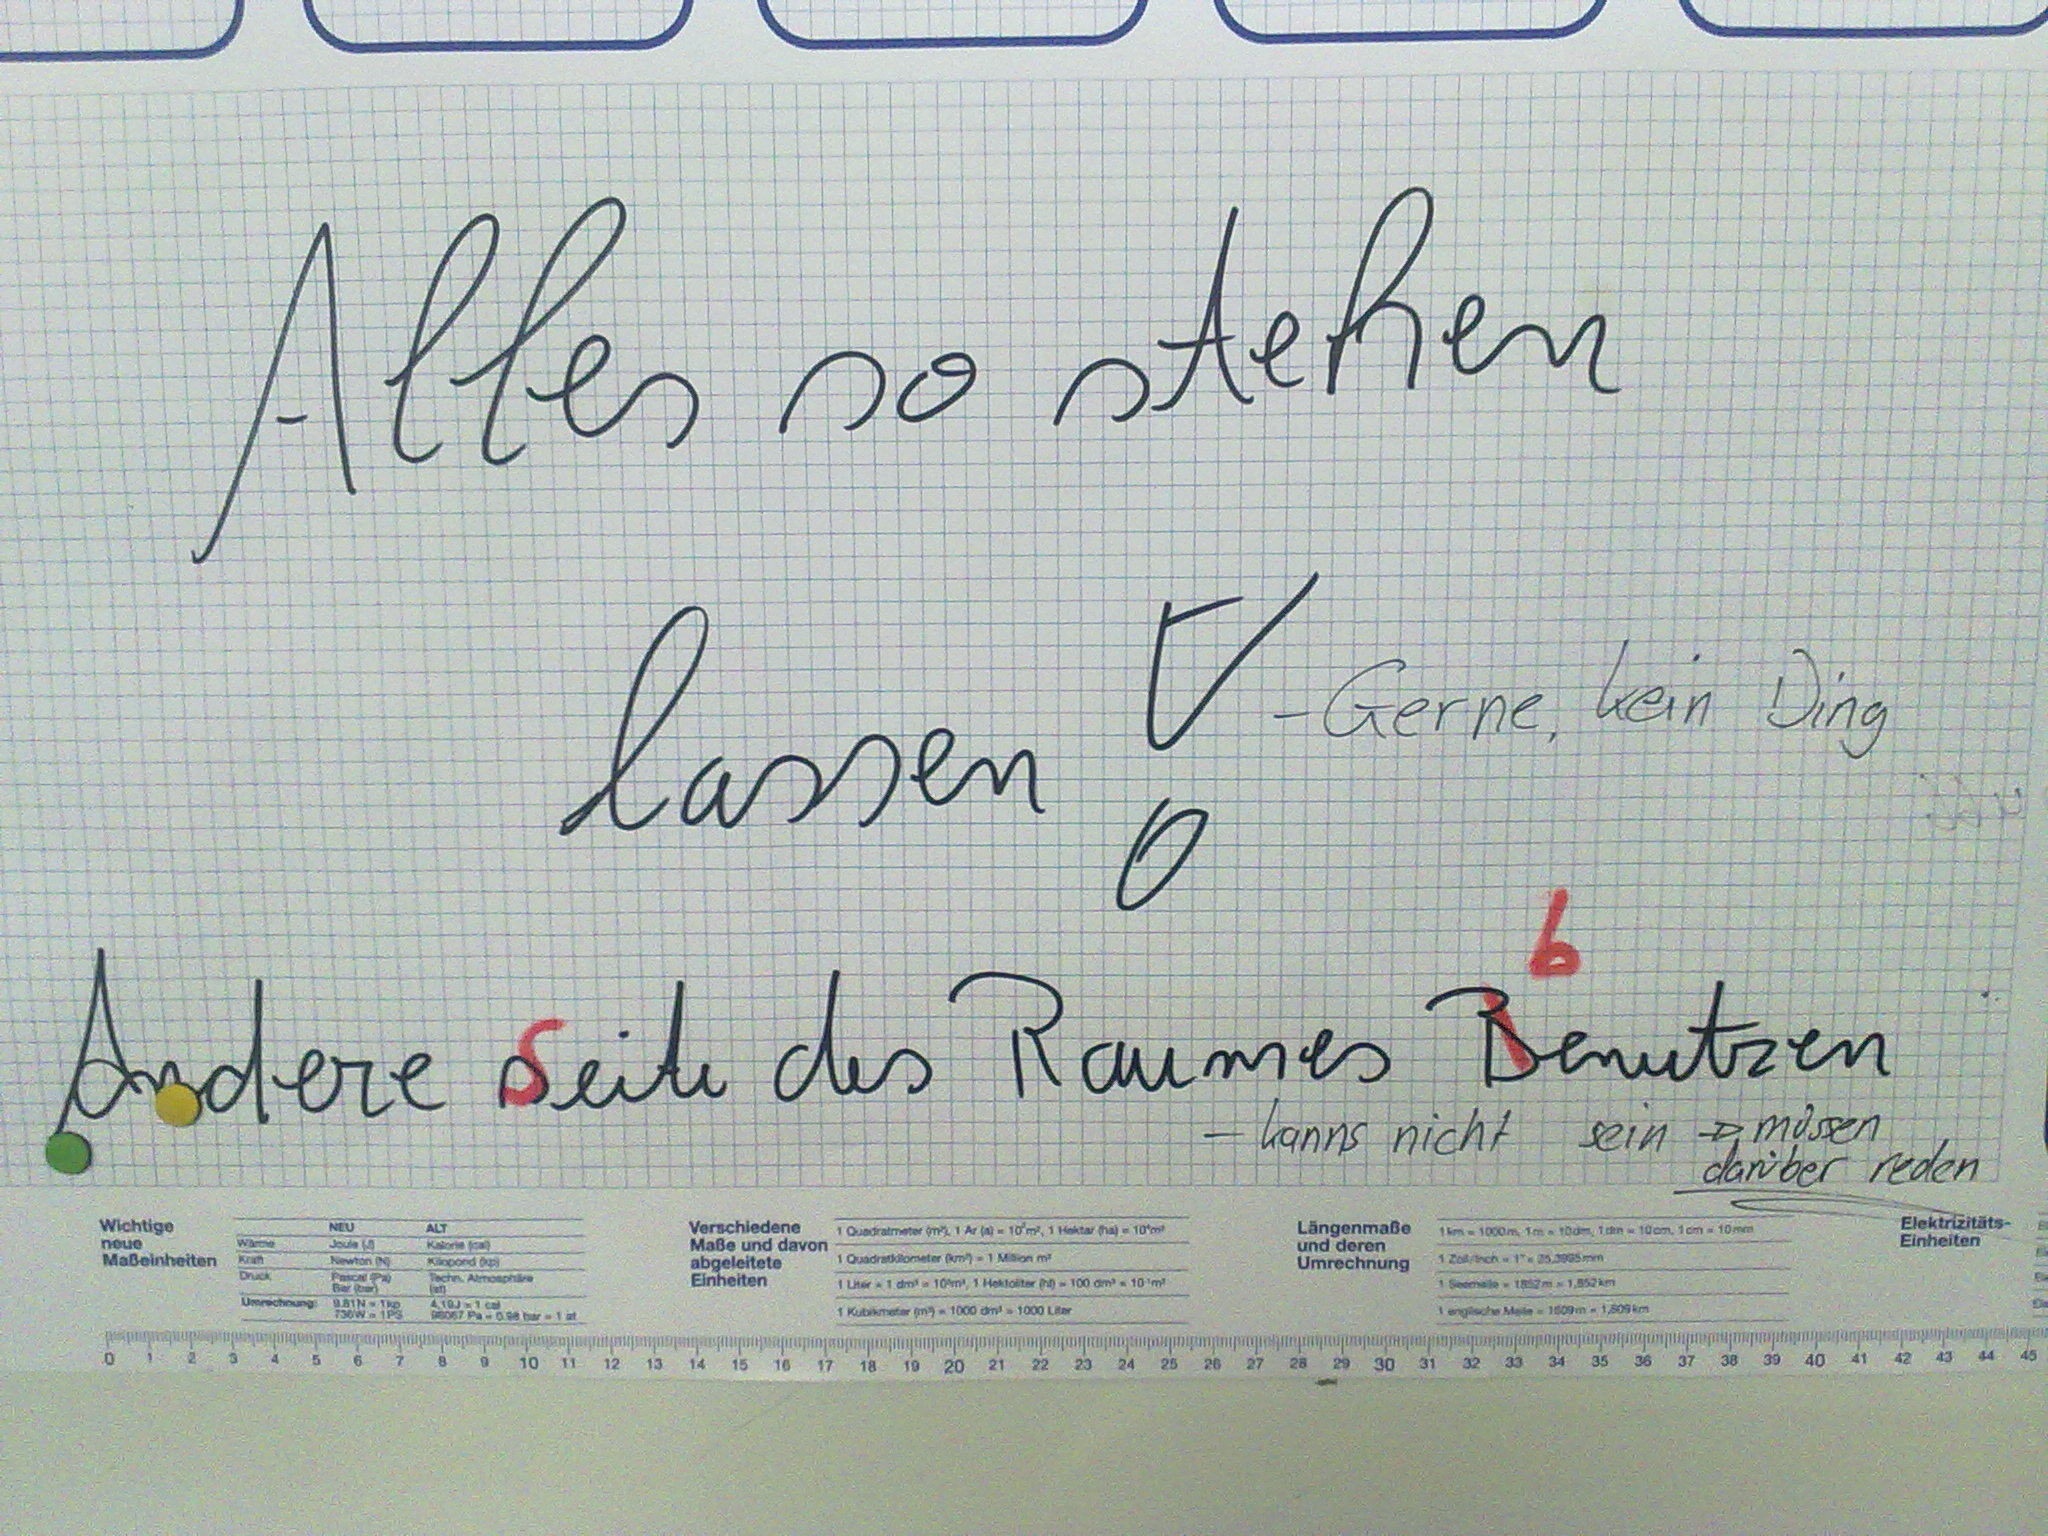 Alles so stehen
lassen!
- Gerne, kein Ding
b
Andere Seite des Raumes Benutzen
- kanns nicht sein → müssen
darüber reden
Wichtige
neue
Maßeinheiten
NEU ALT
Wärme Joule (J) Kalorie (cal)
Kraft Newton (N) Kilopond (kp)
Druck Pascal (Pa) Techn. Atmosphäre
Bar (bar) (at)
Umrechnung: 9,81N = 1kp 4,19J = 1 cal
736W = 1PS 98067 Pa = 0.98 bar = 1 at
Verschiedene
Maße und davon
abgeleitete
Einheiten
1 Quadratmeter (m²), 1 Ar (a) = 10²m², 1 Hektar (ha) = 10⁴m²
1 Quadratkilometer (km²) = 1 Million m²
1 Liter = 1 dm³ = 10³m³, 1 Hektoliter (hl) = 100 dm³ = 10⁻¹m³
1 Kubikmeter (m³) = 1000 dm³ = 1000 Liter
Längenmaße
und deren
Umrechnung
1 km = 1000 m, 1 m = 10 dm, 1 dm = 10 cm, 1 cm = 10 mm
1 Zoll/Inch = 1" = 25,3995 mm
1 Seemeile = 1852 m = 1,852 km
1 englische Meile = 1609 m = 1,609 km
Elektrizitäts-
Einheiten
0 1 2 3 4 5 6 7 8 9 10 11 12 13 14 15 16 17 18 19 20 21 22 23 24 25 26 27 28 29 30 31 32 33 34 35 36 37 38 39 40 41 42 43 44 45